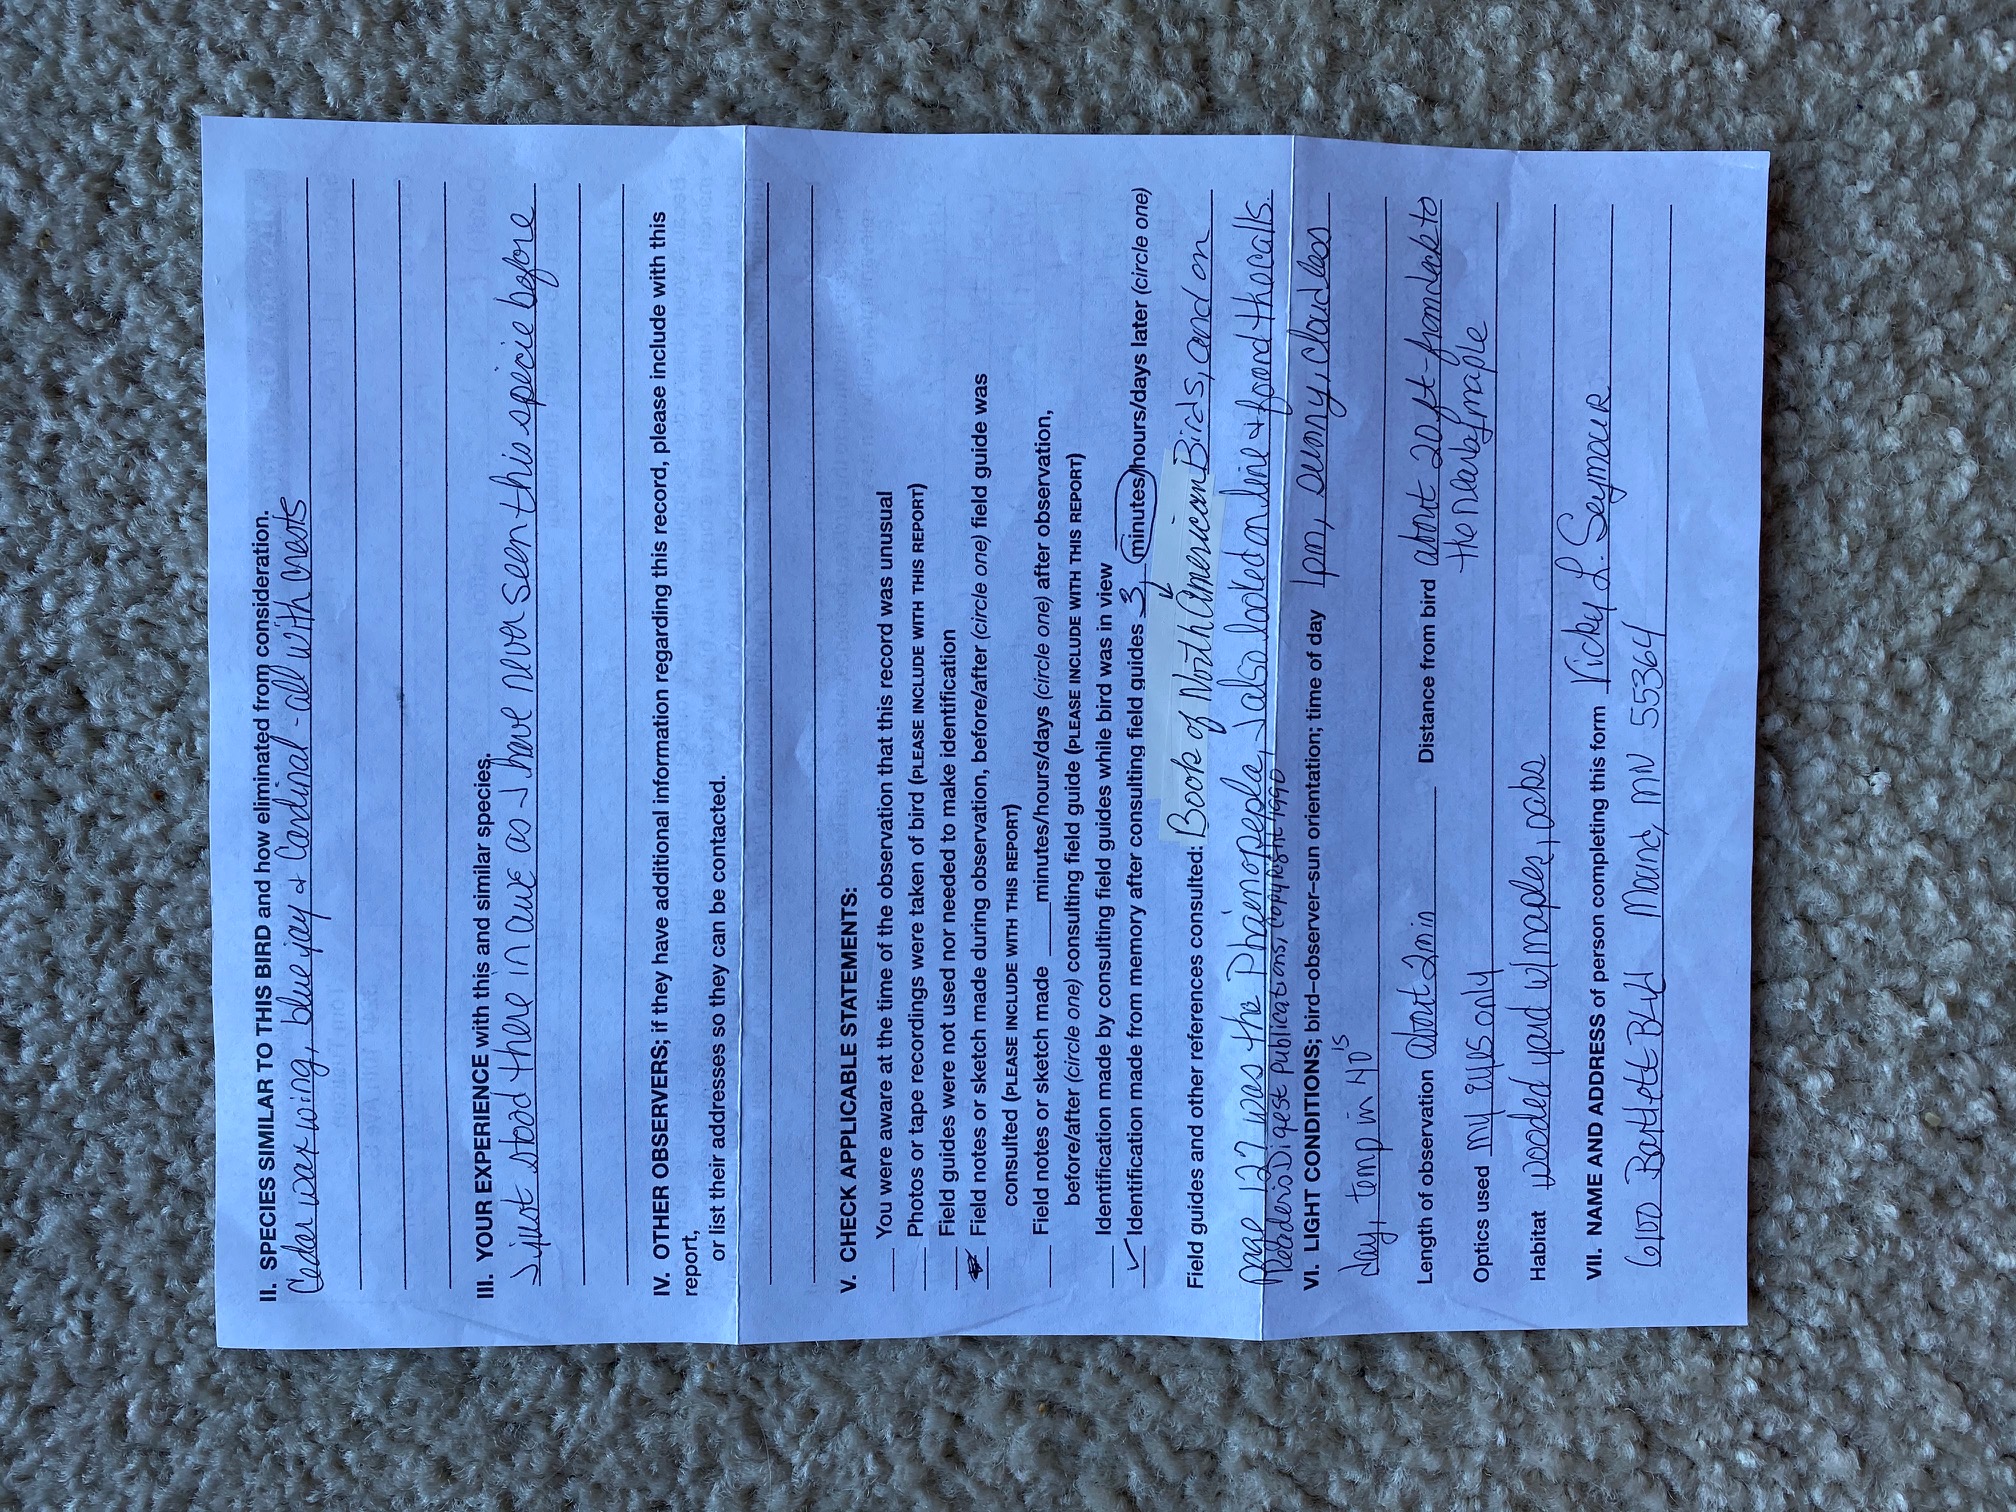 II. SPECIES SIMILAR TO THIS BIRD and how eliminated from consideration.
Cedar wax wing, blue jay & Cardinal - all with crests
III. YOUR EXPERIENCE with this and similar species.
I just stood there in awe as I have never seen this specie before
IV. OTHER OBSERVERS; if they have additional information regarding this record, please include with this
report,
or list their addresses so they can be contacted.
V. CHECK APPLICABLE STATEMENTS:
You were aware at the time of the observation that this record was unusual
Photos or tape recordings were taken of bird (PLEASE INCLUDE WITH THIS REPORT)
Field guides were not used nor needed to make identification
Field notes or sketch made during observation, before/after (circle one) field guide was
consulted (PLEASE INCLUDE WITH THIS REPORT)
Field notes or sketch made ___minutes/hours/days (circle one) after observation,
before/after (circle one) consulting field guide (PLEASE INCLUDE WITH THIS REPORT)
Identification made by consulting field guides while bird was in view
✓ Identification made from memory after consulting field guides 3 minutes/hours/days later (circle one)
Field guides and other references consulted: Book of North American Birds, and on
page 127 was the Phainopepla, I also looked on line & found the calls.
Readers Digest publications, copyright 1990
VI. LIGHT CONDITIONS; bird–observer–sun orientation; time of day 1pm, sunny, cloudless
day, temp in 40's
Length of observation about 2min Distance from bird about 20ft - from deck to
Optics used my eyes only the nearby maple
Habitat wooded yard w/maples, oaks
VII. NAME AND ADDRESS of person completing this form Vicky L. Seymour
6100 Bartlett Blvd Mound, MN 55364